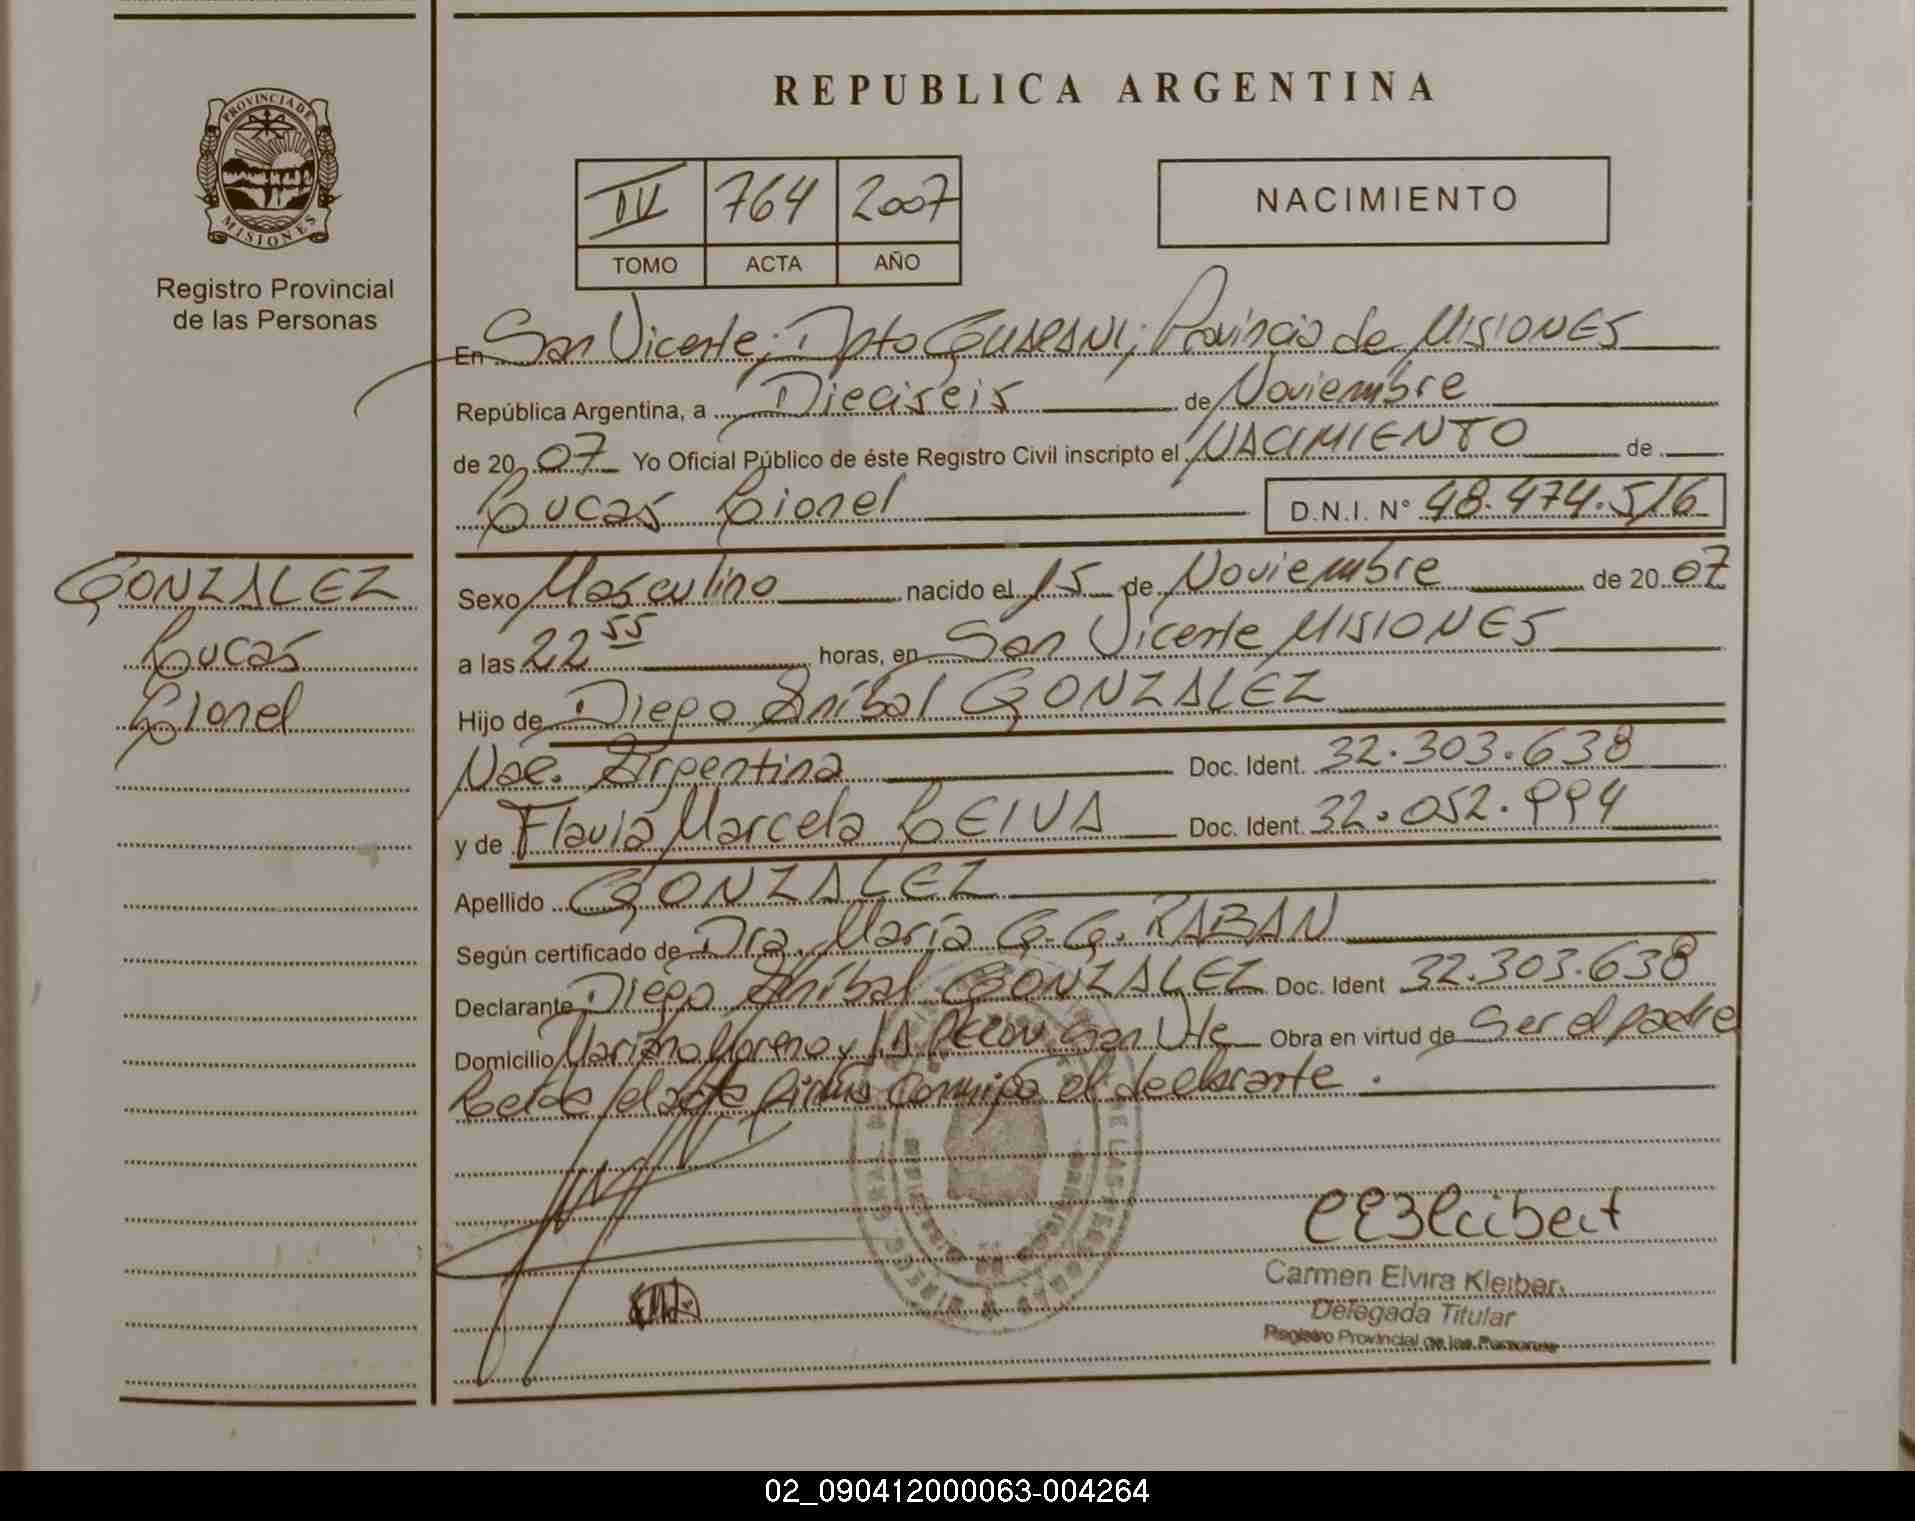 REPUBLICA ARGENTINA
PROVINCIA DE
MISIONES
Registro Provincial
de las Personas
IV 764 2007
TOMO ACTA AÑO
NACIMIENTO
En San Vicente; Dpto GUARANI; Provincia de MISIONES
República Argentina, a Dieciseis de Noviembre
de 2007 Yo Oficial Público de éste Registro Civil inscripto el NACIMIENTO de
Lucas Lionel D.N.I. N° 48.474.516
GONZALEZ
Lucas
Lionel
Sexo Masculino nacido el 15 de Noviembre de 2007
a las 22 55 horas, en San Vicente MISIONES
Hijo de Diego Aníbal GONZALEZ
Nac. Argentina Doc. Ident. 32.303.638
y de Flavia Marcela LEIVA Doc. Ident. 32.052.994
Apellido GONZALEZ
Según certificado de Dra. María G. G. RABAN
Declarante Diego Aníbal GONZALEZ Doc. Ident 32.303.638
Domicilio Mariano Moreno y San Vte Obra en virtud de Ser el padre
Leída el acta firma conmigo el declarante.
Carmen Elvira Kleiber
Delegada Titular
Registro Provincial de las Personas
02_090412000063-004264